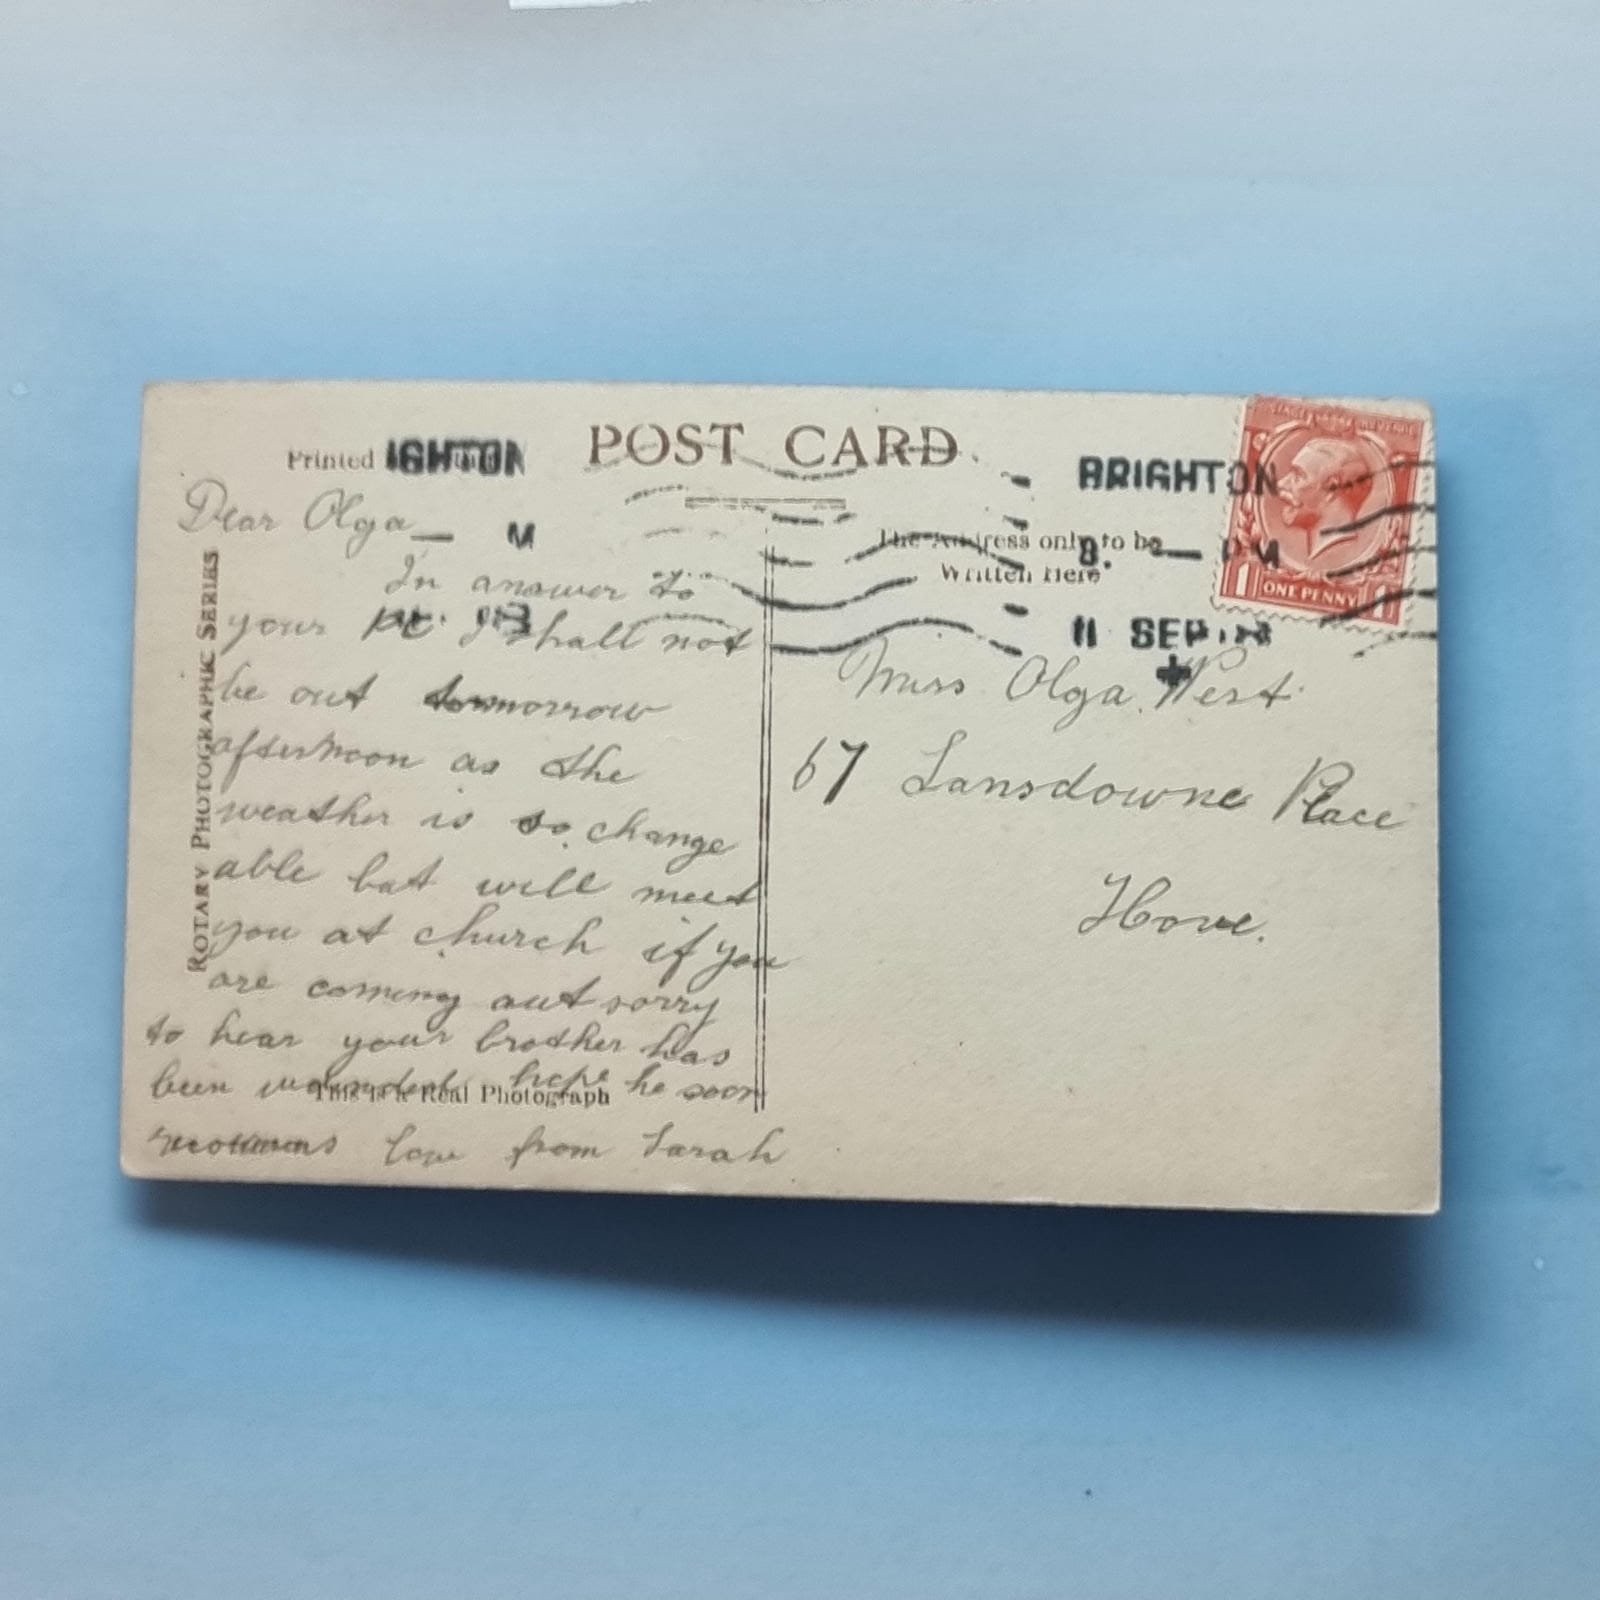 POST CARD
Printed
IGHTON
M
BRIGHTON
8. — PM
11 SEP 18
ONE PENNY
1 1
The Address only to be
Written Here
ROTARY PHOTOGRAPHIC SERIES
Dear Olga
In answer to
your PC I shall not
be out tomorrow
afternoon as the
weather is so change
able but will meet
you at church if you
are coming out sorry
to hear your brother has
been wounded hope he soon
love from Sarah
This is a Real Photograph
Miss Olga West
67 Lansdowne Place
Hove.